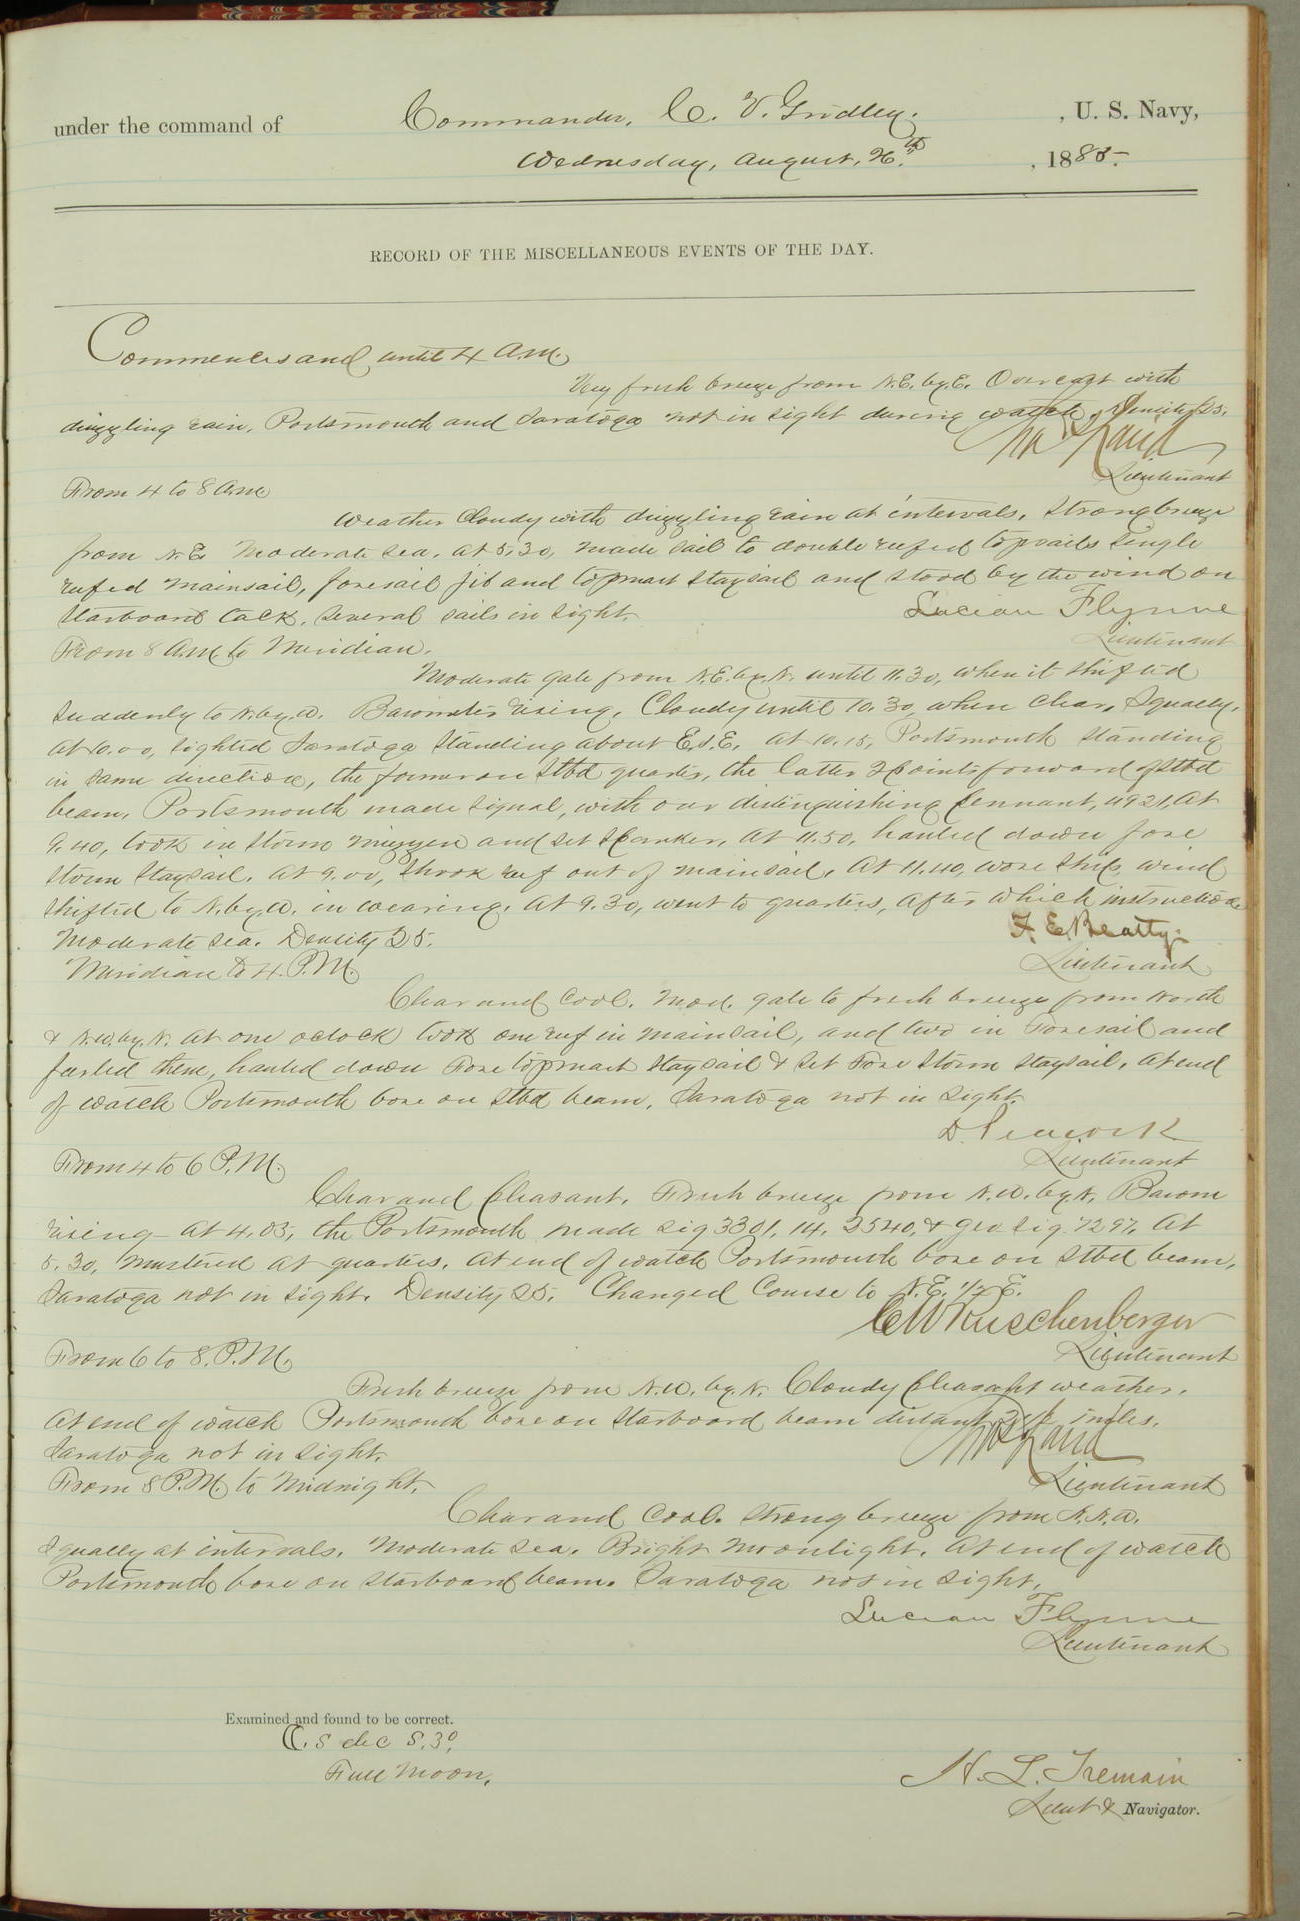 under the command of Commander, C. V. Gridley. , U. S. Navy,
Wednesday, August, 26.th , 1885.
RECORD OF THE MISCELLANEOUS EVENTS OF THE DAY.
Commences and until 4 A.M.
Very fresh breeze from N.E. by. E. Overcast with
drizzling rain, Portsmouth and Saratoga not in sight during watch. Density 25.
Rand
Lieutenant
From 4 to 8 A.M.
Weather Cloudy with drizzling rain at intervals, Strong breeze
from N.E. Moderate sea. At 5.30, made sail to double reefed topsails single
reefed mainsail, foresail jib and topmast staysail and stood by the wind on
starboard tack. Several sails in sight.
Lucian Flynne
Lieutenant
From 8 A.M. to Meridian.
Moderate gale from N.E. by. N. until 11.30, when it shifted
suddenly to N. by. W. Barometer rising, Cloudy until 10.30 when clear, Squally.
At 10.00, sighted Saratoga standing about E.S.E. At 10.15, Portsmouth standing
in same direction, the former on Stbd quarter, the latter 2 points forward of Stbd
beam, Portsmouth made signal, with our distinguishing pennant, 4921, At
9.40, took in storm mizzen and set spanker, At 11.50, hauled down fore
storm staysail. At 9.00, shook reef out of mainsail. At 11.40, wore ship, wind
shifted to N. by. W. in wearing. At 9.30, went to quarters, after which instructions
Moderate sea. Density 25.
F. E. Beatty.
Lieutenant
Meridian to 4. P.M.
Clear and Cool. Mod. gale to fresh breeze from North
& N.W. by. N. At one oclock took one reef in mainsail, and two in Foresail and
furled them, hauled down Fore topmast staysail & set Fore storm staysail. At end
of watch Portsmouth bore on Stbd beam, Saratoga not in sight.
D. Peacock
Lieutenant
From 4 to 6 P.M.
Clear and pleasant. Fresh breeze from N.W. by. N. Barom
rising - At 4.05, the Portsmouth made sig 3301, 14, 2540, & geo sig 7297. At
5.30, mustered at quarters. At end of watch Portsmouth bore on Stbd beam,
Saratoga not in sight. Density 25. Changed Course to N.E. 1/2 E.
C W Ruschenberger
Lieutenant
From 6 to 8. P.M.
Fresh breeze from N.W. by. N. Cloudy pleasant weather.
At end of watch Portsmouth bore on starboard beam distant miles.
Saratoga not in sight.
Rand
Lieutenant
From 8 P.M. to Midnight.
Clear and Cool. Strong breeze from N.N.W.
Squally at intervals. Moderate sea. Bright Moonlight. At end of watch
Portsmouth bore on starboard beam. Saratoga not in sight.
Lucian Flynne
Lieutenant
Examined and found to be correct.
s dec 8.30.
Full Moon.
H. L. Tremain
Lieut & Navigator.